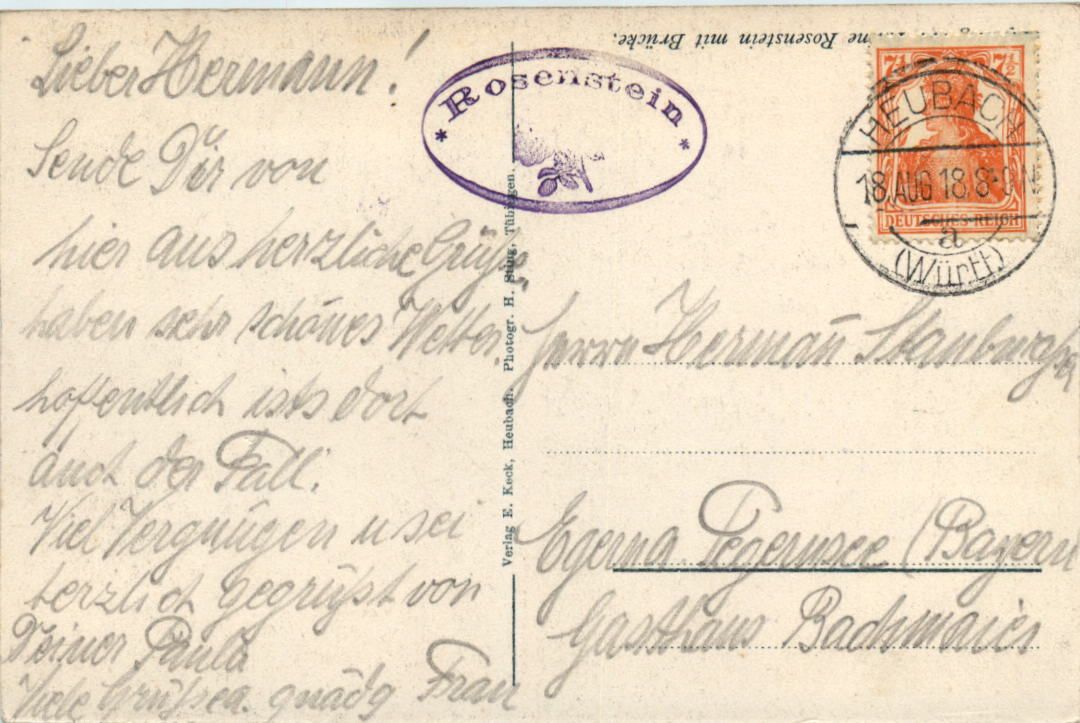 Lieber Hermann!
Sende Dir von
hier aus herzliche Grüße,
haben sehr schönes Wetter,
hoffentlich ists dort
auch der Fall.
Viel Vergnügen u sei
herzlich gegrüßt von
Deiner Paula
Viele Grüße a. gnädg Frau
Rosenstein mit Brücke.
* Rosenstein *
Verlag E. Keck, Heubach. Photogr. H. Sting, Tübingen.
7½ 7½
DEUTSCHES REICH
HEUBACH
18.AUG 18. 8-9 N
a
(Württ)
Herrn Hermann
Egern a Tegernsee (Bayern
Gasthaus Bachmaier